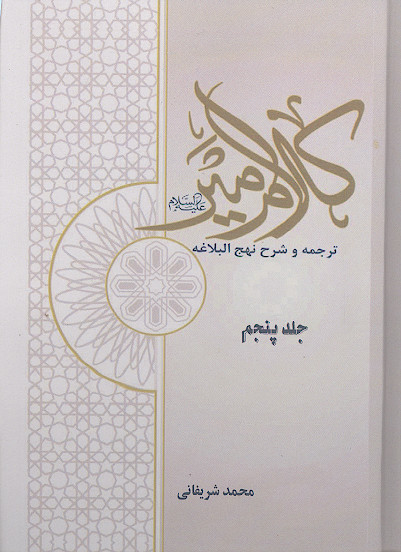 کلام امیر
علیه السلام
ترجمه و شرح نهج البلاغه
جلد پنجم
محمد شریفانی